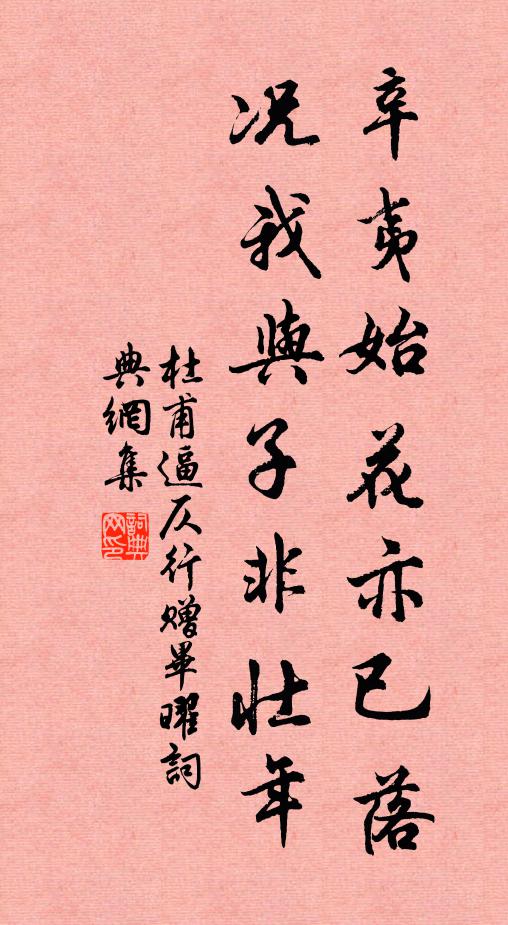 辛夷始花亦已落
况我與子非壯年
杜甫逼仄行贈畢曜詞
典網集
詞典
网印